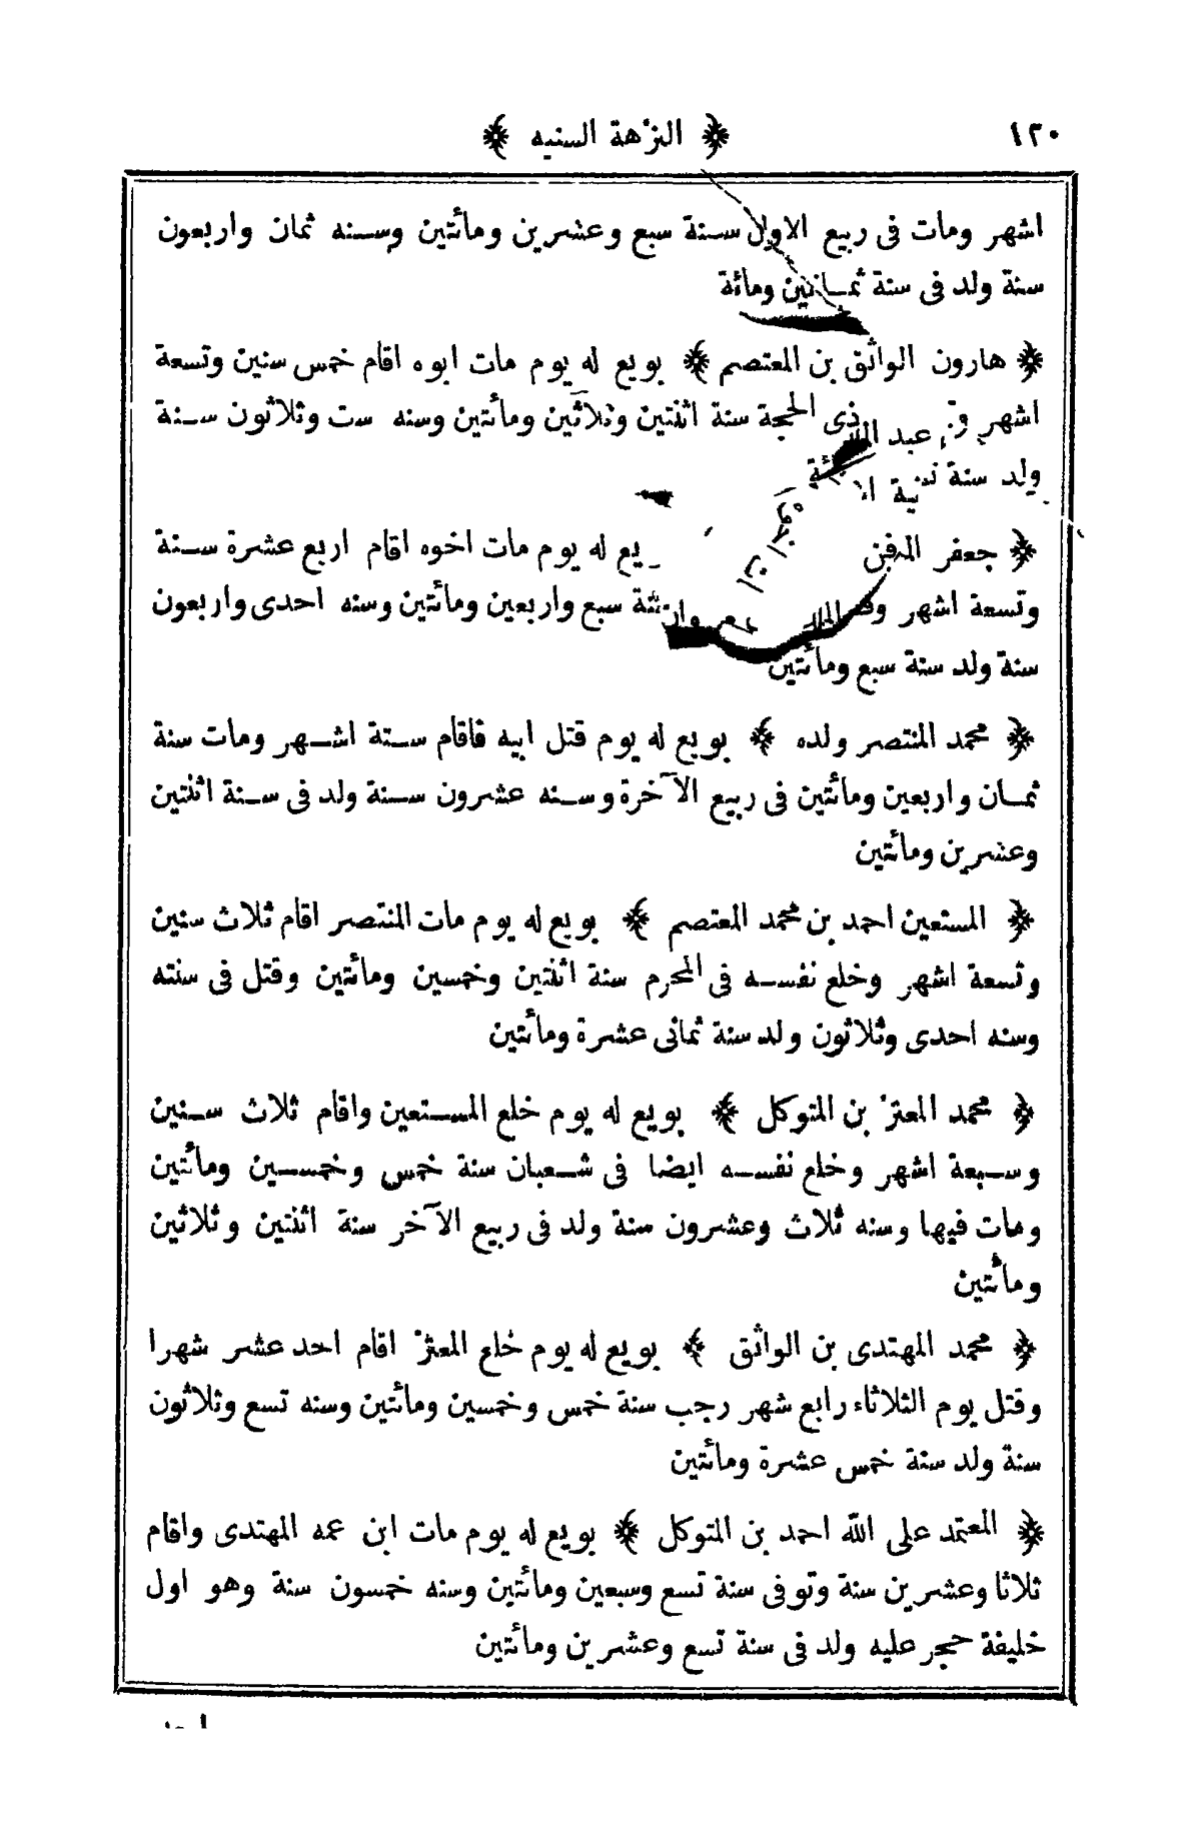 ١٢٠ ﴿ النزهة السنيه ﴾
اشهر ومات فى ربيع الاول سنة سبع وعشرين ومأتين وسنه ثمان واربعون
سنة ولد فى سنة ثمانين ومائة
﴿ هارون الواثق بن المعتصم ﴾ بويع له يوم مات ابوه اقام خمس سنين وتسعة
اشهر ذى الحجة سنة اثنتين وثلاثين ومأتين وسنه ست وثلاثون سنة
ولد سنة
﴿ جعفر له يوم مات اخوه اقام اربع عشرة سنة
وتسعة اشهر سبع واربعين ومأتين وسنه احدى واربعون
سنة ولد سنة سبع ومأتين
﴿ محمد المنتصر ولده ﴾ بويع له يوم قتل ابيه فاقام ستة اشهر ومات سنة
ثمان واربعين ومأتين فى ربيع الآخرة وسنه عشرون سنة ولد فى سنة اثنتين
وعشرين ومأتين
﴿ المستعين احمد بن محمد المعتصم ﴾ بويع له يوم مات المنتصر اقام ثلاث سنين
وتسعة اشهر وخلع نفسه فى المحرم سنة اثنتين وخمسين ومأتين وقتل فى سنته
وسنه احدى وثلاثون ولد سنة ثمانى عشرة ومأتين
﴿ محمد المعتز بن المتوكل ﴾ بويع له يوم خلع المستعين واقام ثلاث سنين
وسبعة اشهر وخلع نفسه ايضا فى شعبان سنة خمس وخمسين ومأتين
ومات فيها وسنه ثلاث وعشرون سنة ولد فى ربيع الآخر سنة اثنتين وثلاثين
ومأتين
﴿ محمد المهتدى بن الواثق ﴾ بويع له يوم خلع المعتز اقام احد عشر شهرا
وقتل يوم الثلاثاء رابع شهر رجب سنة خمس وخمسين ومأتين وسنه تسع وثلاثون
سنة ولد سنة خمس عشرة ومأتين
﴿ المعتمد على الله احمد بن المتوكل ﴾ بويع له يوم مات ابن عمه المهتدى واقام
ثلاثا وعشرين سنة وتوفى سنة تسع وسبعين ومأتين وسنه خمسون سنة وهو اول
خليفة حجر عليه ولد فى سنة تسع وعشرين ومأتين